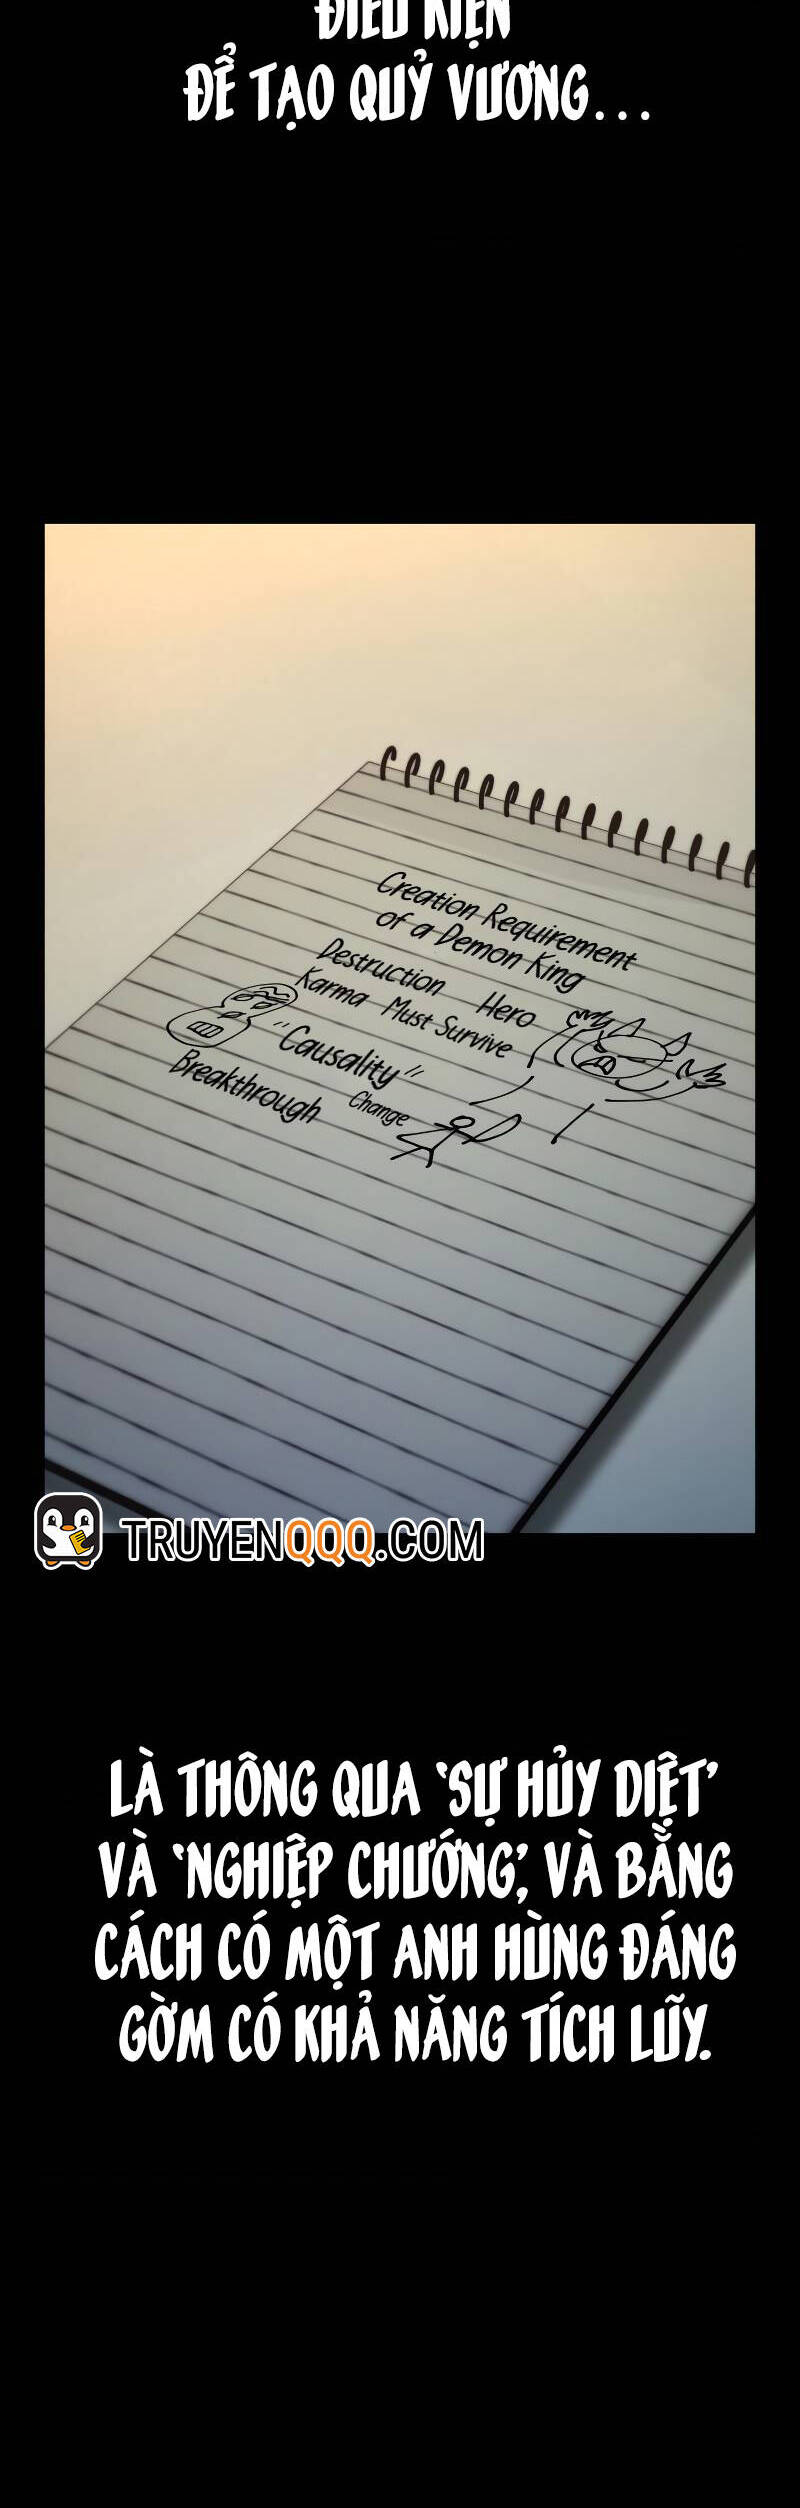 ĐIỀU KIỆN
ĐỂ TẠO QUỶ VƯƠNG...
Creation Requirement
of a Demon King
Destruction Hero
Karma Must Survive
"Causality"
Breakthrough Change
TRUYENQQQ.COM
LÀ THÔNG QUA 'SỰ HỦY DIỆT'
VÀ 'NGHIỆP CHƯỚNG', VÀ BẰNG
CÁCH CÓ MỘT ANH HÙNG ĐÁNG
GỜM CÓ KHẢ NĂNG TÍCH LŨY.